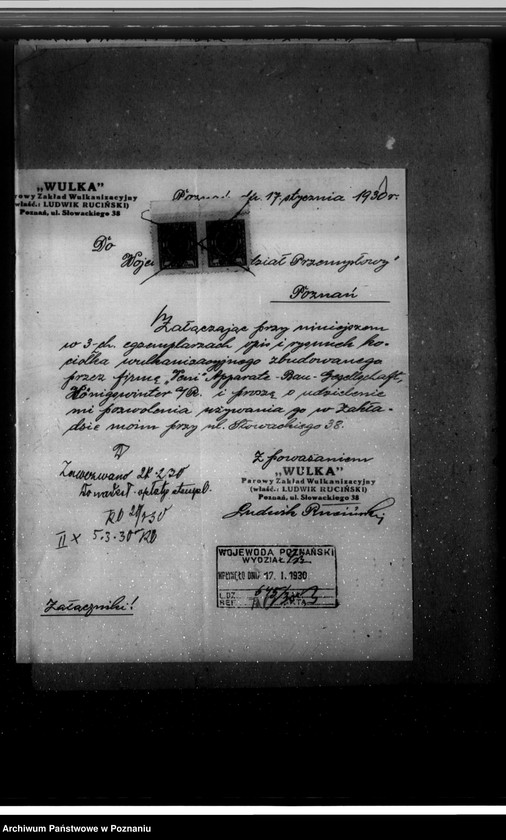 „WULKA"
rowy Zakład Wulkanizacyjny
właśc.: LUDWIK RUCIŃSKI)
Poznań, ul. Słowackiego 38
Poznań, 17 stycznia 1930 r.
Do
Woje dział Przemysłowy"
Poznań
Załączając przy niniejszem
w 3-ch egzemplarzach opis i rysunek ko-
ciołka wulkanizacyjnego zbudowanego
przez firmę „Veni" Apparate-Bau-Gesellschaft,
Königswinter a/R. i proszę o udzielenie
mi pozwolenia używania go w Zakła-
dzie moim przy ul. Słowackiego 38.
Z poważaniem
„WULKA"
Parowy Zakład Wulkanizacyjny
(właśc.: LUDWIK RUCIŃSKI)
Poznań, ul. Słowackiego 38
Ludwik Ruciński
Wezwano
opłaty stempl.
II x 5.3.30
WOJEWODA POZNAŃSKI
WYDZIAŁ
WPŁYNĘŁO DNIA 17. I. 1930
L. DZ.
REF.
Załączniki!
Archiwum Państwowe w Poznaniu